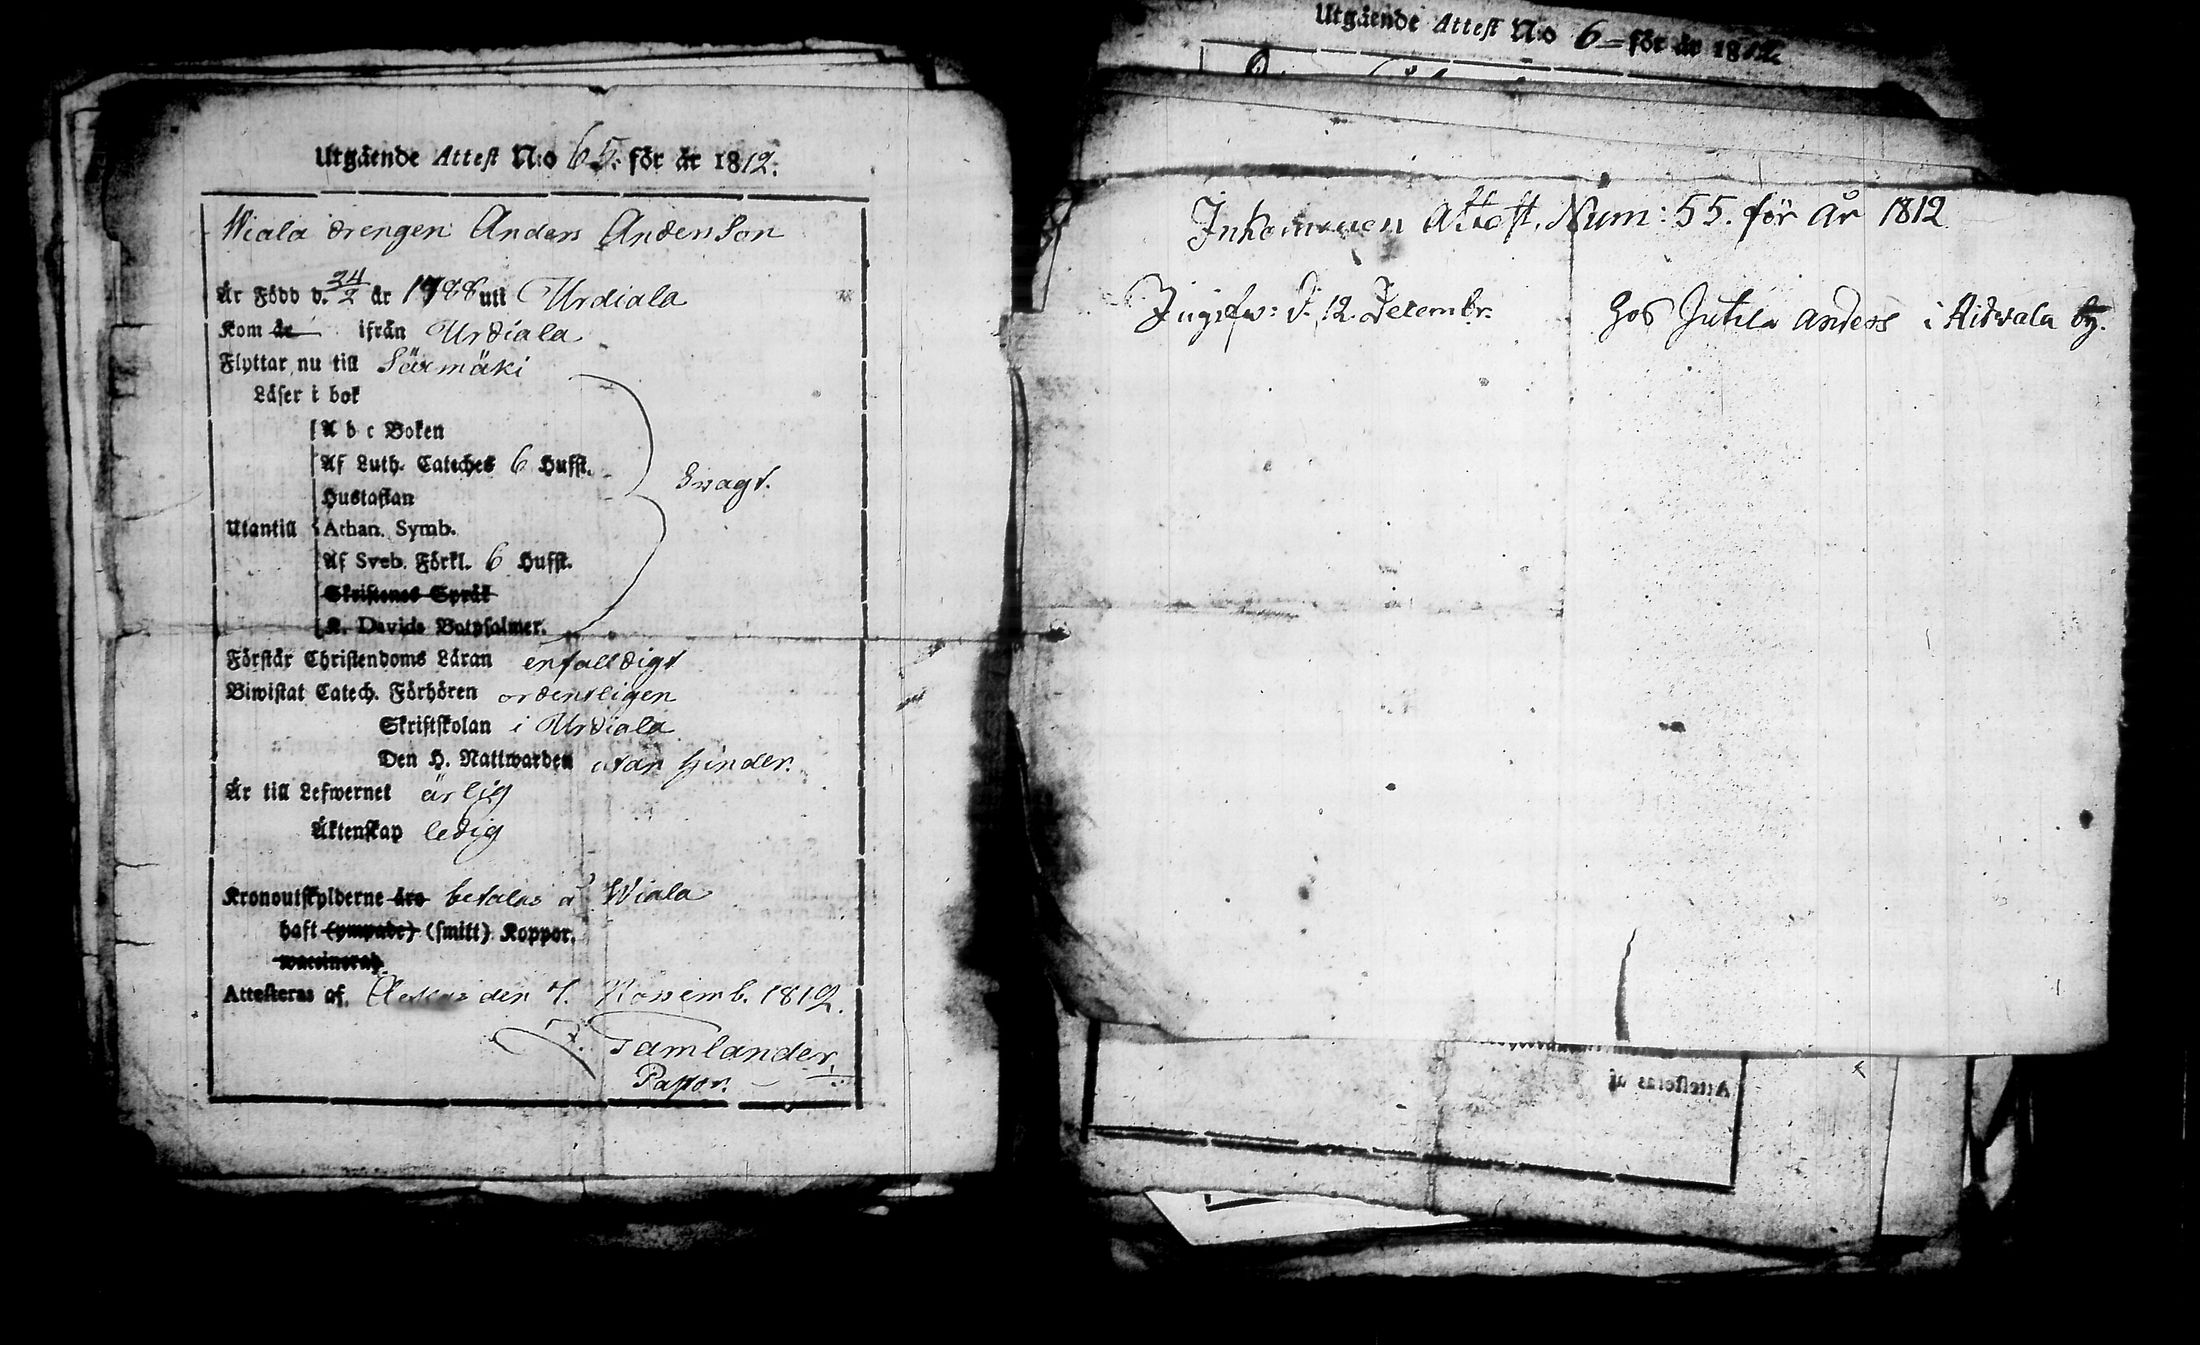 Utgående Attest N:o 65. för år 1812.
Wiala drengen Anders Anderson
Är Född d. 24/2 år 1788 uti Urdiala
Kom år ifrån Urdiala
Flyttar nu till Säxmäki
Läser i bok
A b c Boken
Af Luth. Cateches 6 Hufst.
Hustaflan
Utantill Athan. Symb.
Af Sveb. Förkl. 6 Hufst.
Skriftenes Språk
K. Davids Botpsalmer.
Svagt.
Förstår Christendoms Läran enfalldigt
Biwistat Catech. Förhören ordentligen
Skriftskolan i Urdiala
Den H. Nattwarden utan hinder.
Är till Lefwernet ärlig
Äktenskap ledig
Kronoutskylderne äro betalas a Wiala
haft (ympade) (smitt) Koppor.
waccinerad
Attesteras af, den 7. Novemb. 1812.
Tamlander,
Pastor.
Utgående Attest N:o 6 för år 1812.
Inkommen Attest. Num: 55. för år 1812
d. 12. Decembr.
hos Jutila Anders i Ridvala by.
Attesteras af